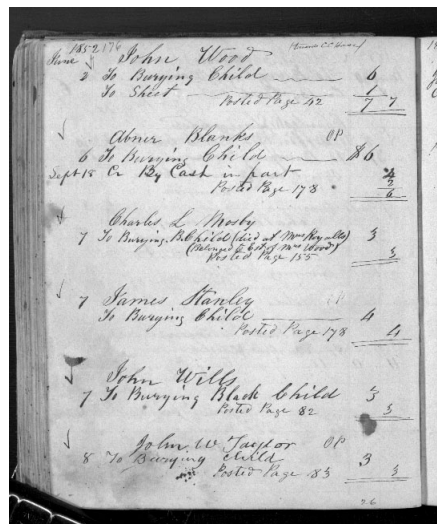 1852 176 John Wood
June 2 To Burying Child 6
To Sheet 1
Posted Page 42 7 7
Abner Blanks OP
6 To Burying Child $6
Sept 18 Cr By Cash in part 4
Posted Page 178 2
6
Charles L Mosby
7 To Burying B. Child (died at Mrs Royalls) 3
(Belonged to Est of Mrs Wood)
Posted Page 155 3
7 James Stanley OP
To Burying Child 4
Posted Page 178 4
John Wills
7 To Burying Black Child 3
Posted Page 82 3
John W Taylor OP
8 To Burying Child 3
Posted Page 83 3
26